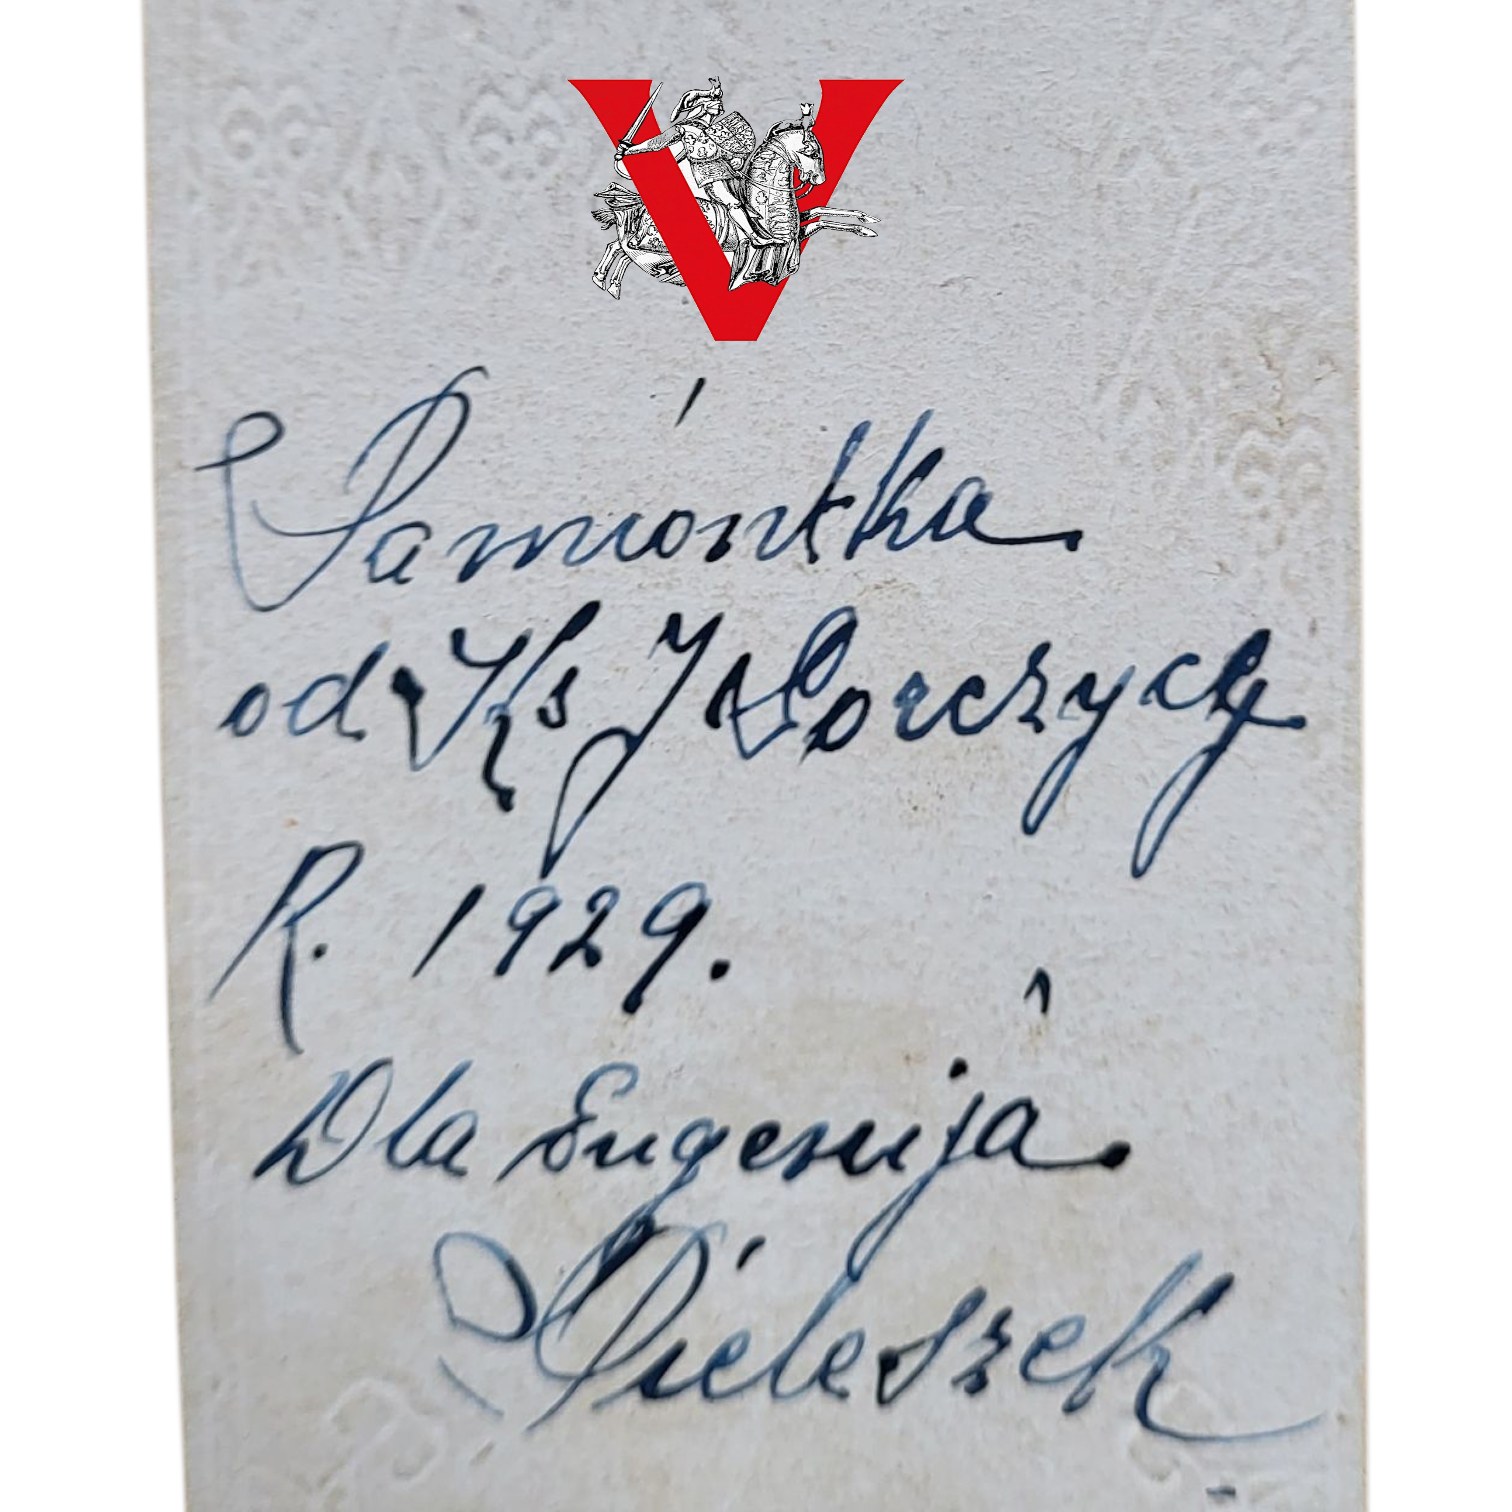 V
Pamiontka
od Ks J Porczycy
R. 1929.
Dla Eugenija.
Pieleszek